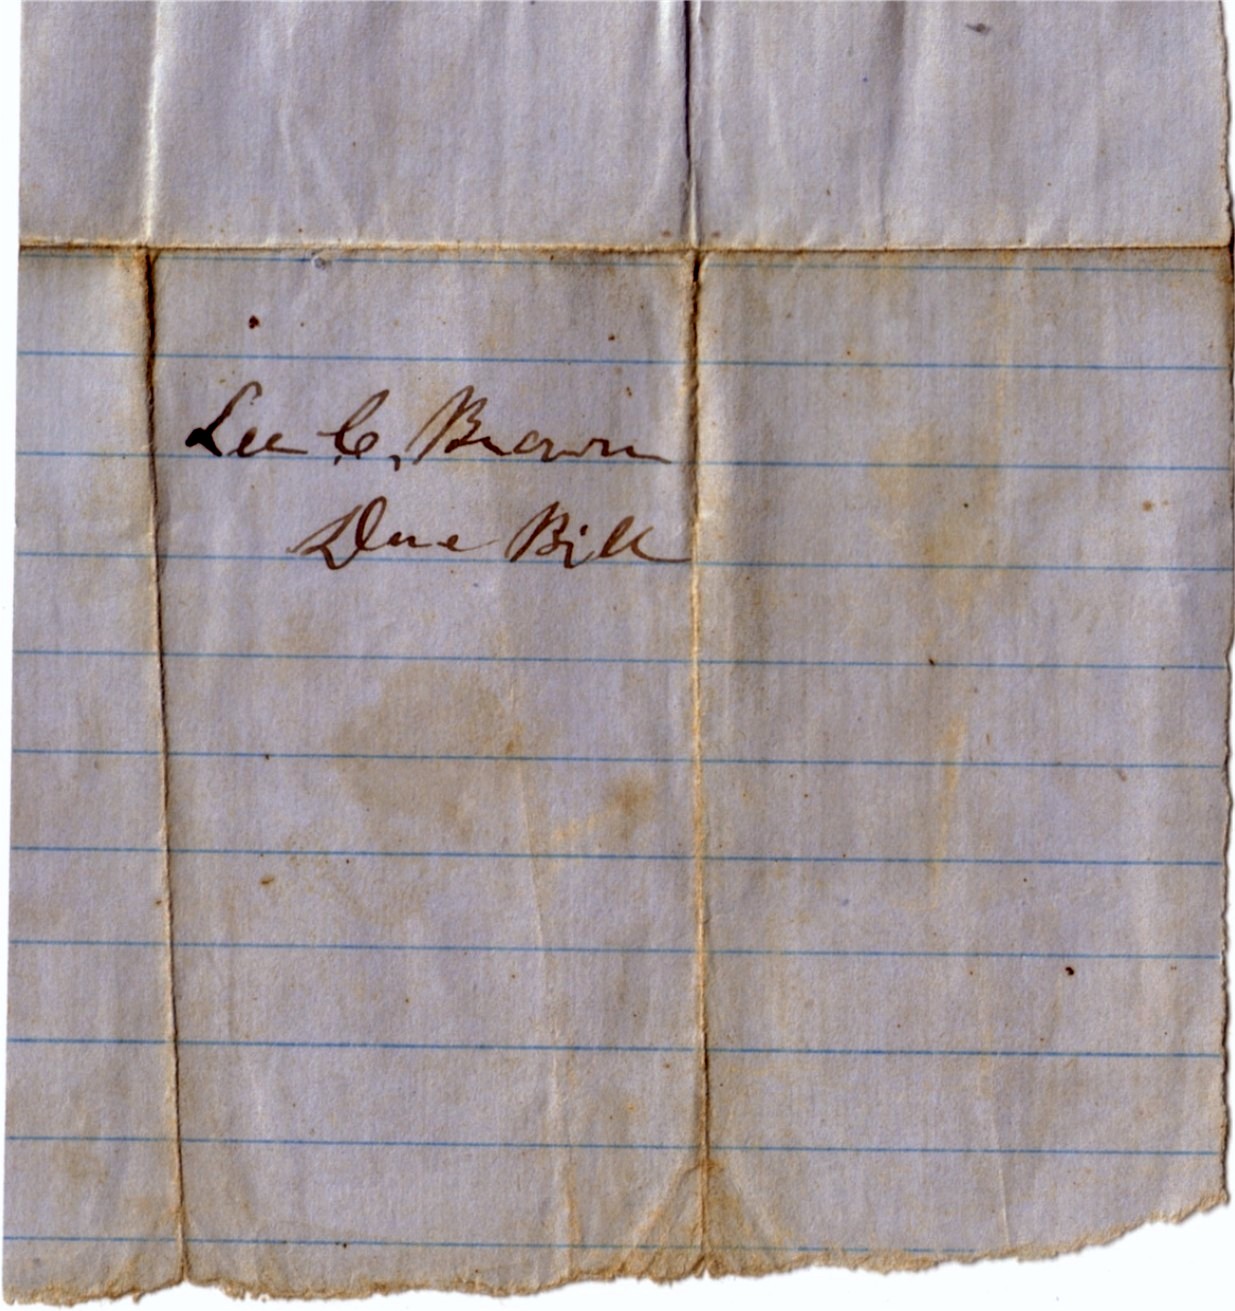 Lee C. Brown
Due Bill